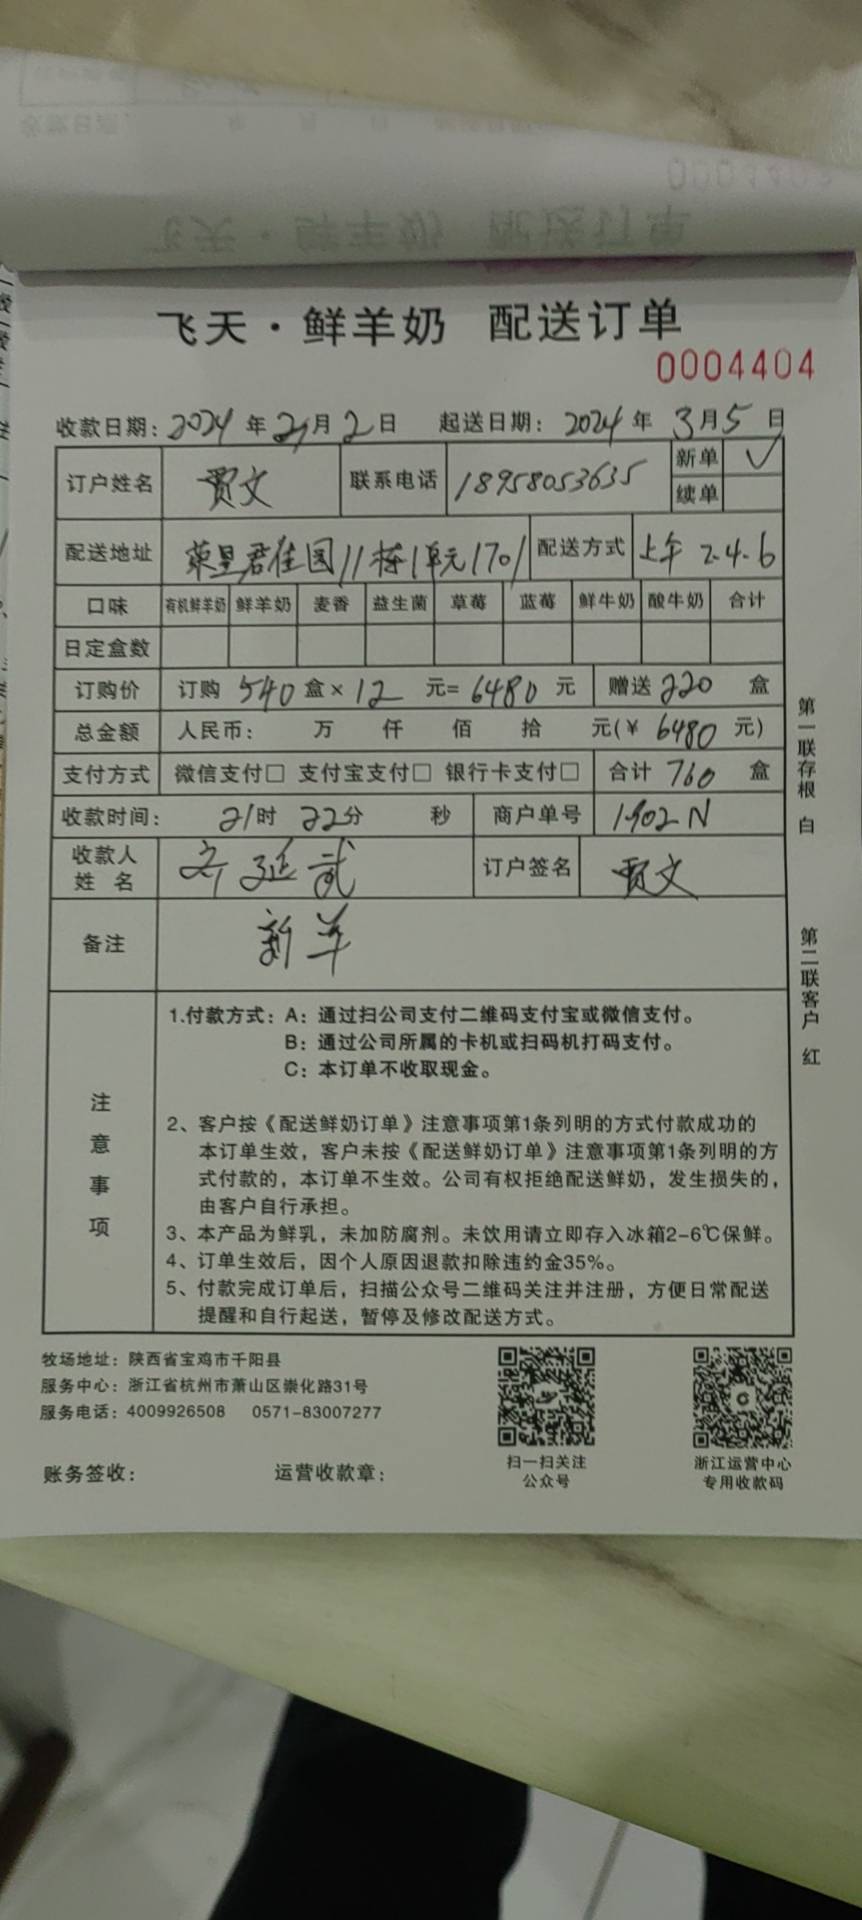 飞天·鲜羊奶 配送订单
0004404
收款日期：2024年2月2日 起送日期：2024年3月5日
订户姓名 贾文 联系电话 18958053635 新单 ✓
续单
配送地址 荣星君佳园11栋1单元1701 配送方式 上午 2.4.6
口味 有机鲜羊奶 鲜羊奶 麦香 益生菌 草莓 蓝莓 鲜牛奶 酸牛奶 合计
日定盒数
订购价 订购 540 盒× 12 元= 6480 元 赠送 220 盒
总金额 人民币： 万 仟 佰 拾 元(¥ 6480 元)
支付方式 微信支付□ 支付宝支付□ 银行卡支付□ 合计 760 盒
收款时间： 21时 22分 秒 商户单号 1902N
收款人
姓 名 齐延武 订户签名 贾文
备注 新羊
注意事项
1.付款方式：A：通过扫公司支付二维码支付宝或微信支付。
B：通过公司所属的卡机或扫码机打码支付。
C：本订单不收取现金。
2、客户按《配送鲜奶订单》注意事项第1条列明的方式付款成功的
本订单生效，客户未按《配送鲜奶订单》注意事项第1条列明的方
式付款的，本订单不生效。公司有权拒绝配送鲜奶，发生损失的，
由客户自行承担。
3、本产品为鲜乳，未加防腐剂。未饮用请立即存入冰箱2-6℃保鲜。
4、订单生效后，因个人原因退款扣除违约金35%。
5、付款完成订单后，扫描公众号二维码关注并注册，方便日常配送
提醒和自行起送，暂停及修改配送方式。
第一联存根 白
第二联客户 红
牧场地址：陕西省宝鸡市千阳县
服务中心：浙江省杭州市萧山区崇化路31号
服务电话：4009926508 0571-83007277
扫一扫关注
公众号
浙江运营中心
专用收款码
账务签收： 运营收款章：